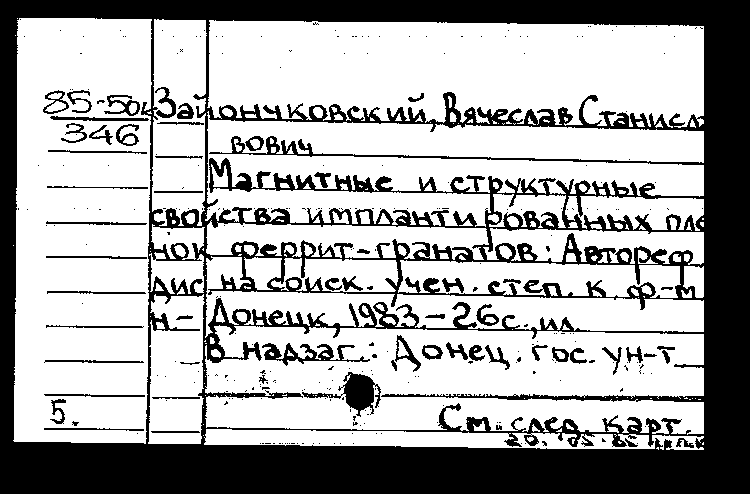 85-50к Зайончковский, Вячеслав Станисла
346 вович
Магнитные и структурные
свойства имплантированных пле
нок феррит-гранатов: Автореф.
дис. на соиск. учен. степ. к. ф.-м.
н.- Донецк, 1983.- 26с., ил.
В надзаг.: Донец. гос. ун-т
5. См. след. карт.
20. 05. 85